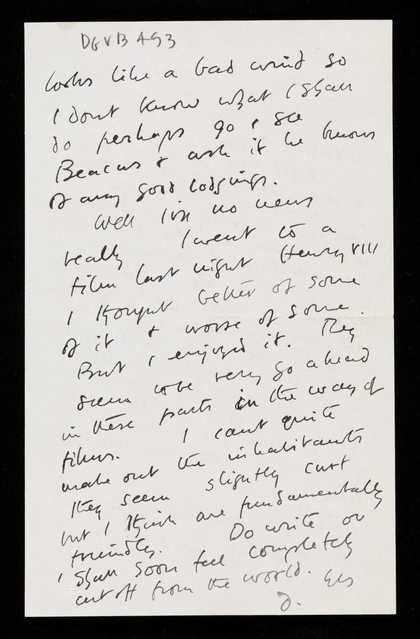 DGVB 493
looks like a bad wind so
I dont know what I shall
do perhaps go & see
Beacus & ask if he knows
of any good lodgings.
Well I've no news
really I went to a
film last night Henry VIII
I thought better of some
of it & worse of some.
But I enjoyed it. They
seem to be very go ahead
in these parts in the way of
films. I cant quite
make out the inhabitants
They seem slightly curt
but I think are fundamentally
friendly. Do write or
I shall soon feel completely
cut off from the world.
D.